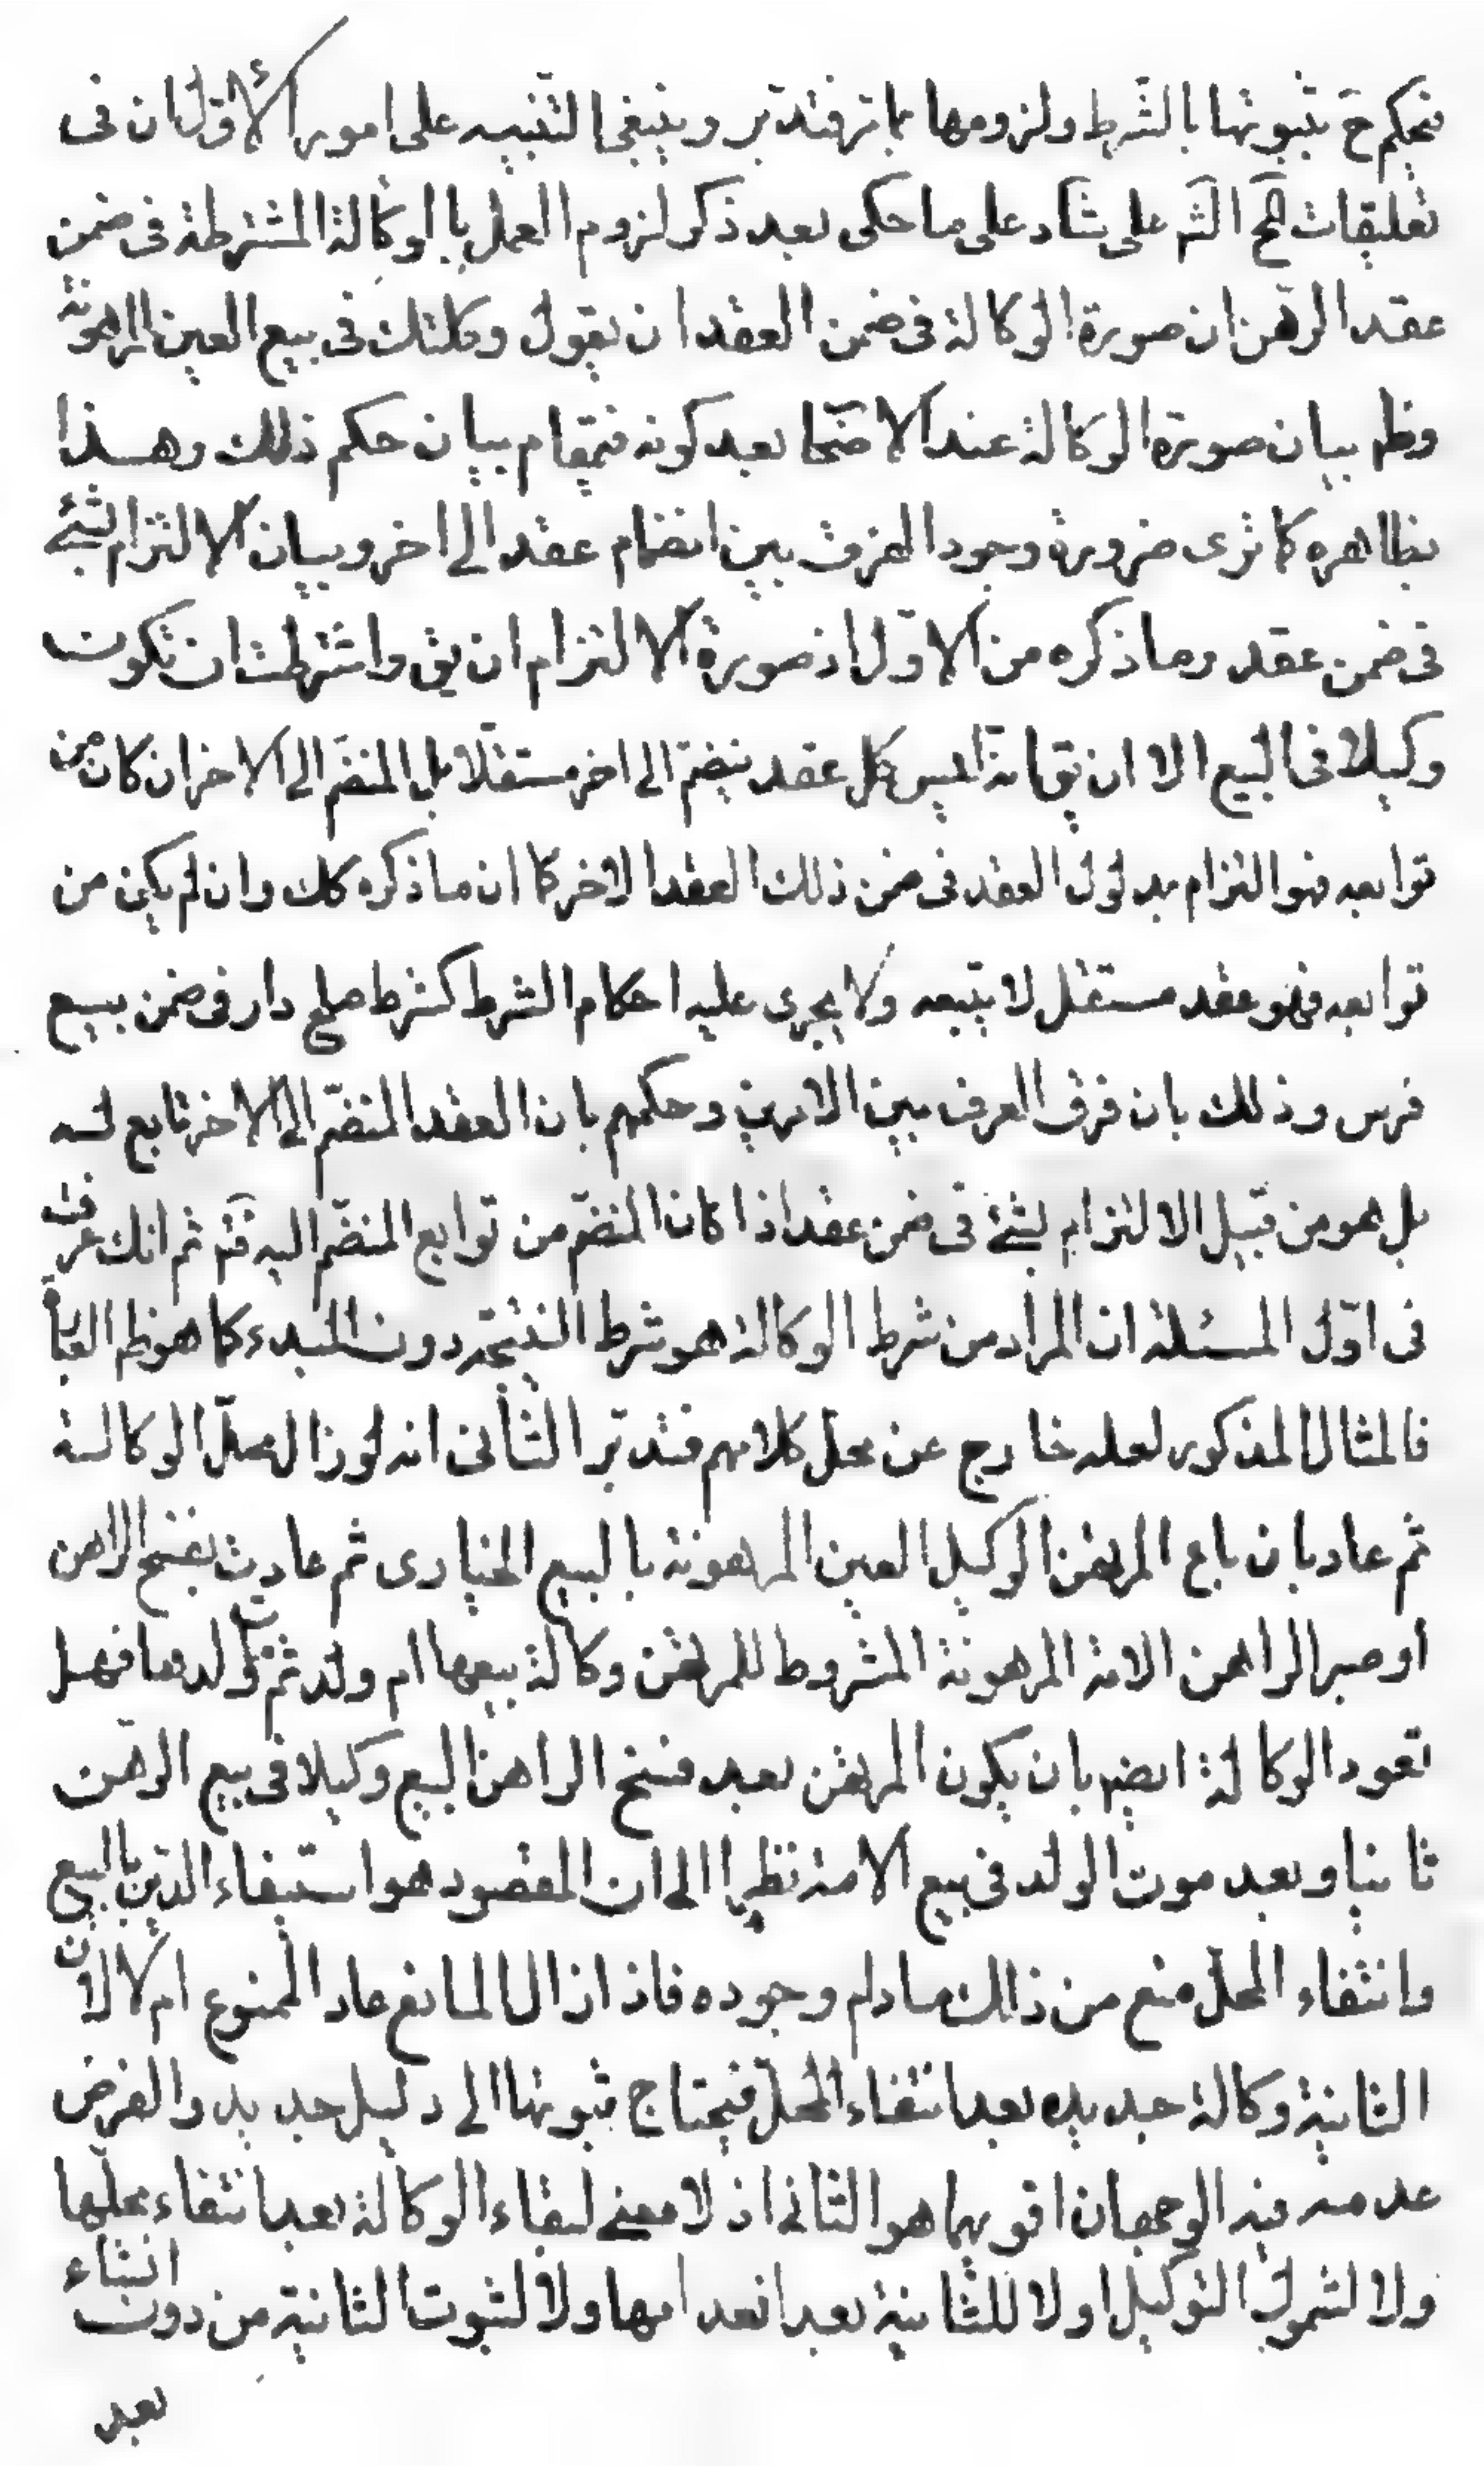 فيحكم ح بثبوتها بالشرط ولزومها بما ترفتدبر وينبغي التنبيه على امور الأول ان فى
تعليقات المح الشر على شاد على ما حكى بعد ذكر لزوم العمل بالوكالة المشترطة فى ضمن
عقد الرهن ان صورة الوكالة فى ضمن العقد ان يقول وكلتك فى بيع العين المرهونة
وظ بيان صورة الوكالة عند الاصحا بعد كونه فمقام بيان حكم ذلك وهذا
بظاهره كما ترى ضرورة وجود الفرق بين انضمام عقد الى اخر وبيان الالتزام لشئ
فى ضمن عقد وما ذكره من الاول اذ صورة الالتزام ان يق واشترطت ان تكون
وكيلا فى البيع الا ان يق انه ليس كل عقد ينضم الى اخر مستقلا بل المنضم الى الاخر ان كان من
توابعه فهو التزام بمدلول العقد فى ضمن ذلك العقد الاخر كما ان ما ذكره كك وان لم يكن من
توابعه فهو عقد مستقل لا يتبعه ولا يجرى عليه احكام الشرط كشرط صلح دار فى ضمن بيع
فرس وذلك بان فرق العرف بين الامرين وحكمهم بان العقد المنضم الى الاخر تابع له
بل هو من قبيل الالتزام بشئ فى ضمن عقد اذا كان المنضم من توابع المنضم اليه فتم ثم انك عرفت
فى اول المسئلة ان المراد من شرط الوكالة هو شرط النتيجة دون المبدء كما هو ظ العبا
فالمثال المذكور لعله خارج عن محل كلامهم فتدبر الثانى انه لو زال محل الوكالة
ثم عاد بان باع المرتهن الوكيل العين المرهونة بالبيع الخيارى ثم عادت بفسخ الراهن
او صير الراهن الامة المرهونة المشروط للمرتهن وكالة بيعها ام ولد ثم مات ولدها فهل
تعود الوكالة ايضا بان يكون المرتهن بعد فسخ الراهن البيع وكيلا فى بيع الرهن
ثانيا وبعد موت الولد فى بيع الامة نظرا الى ان المقصود هو استيفاء الدين بالبيع
وانتفاء المحل منع من ذلك مادام وجوده فاذا زال المانع عاد الممنوع ام لا لان
الثانية وكالة جديده بعد انتفاء المحل فيحتاج ثبوتها الى دليل جديد والفرض
عدمه فيه الوجهان اقويهما هو الثانى اذ لا معنى لبقاء الوكالة بعد انتفاء محلها
ولا لشمول التوكيل اولا للثانية بعد انعدامها ولا لثبوت الثانية من دون انشاء
بعد